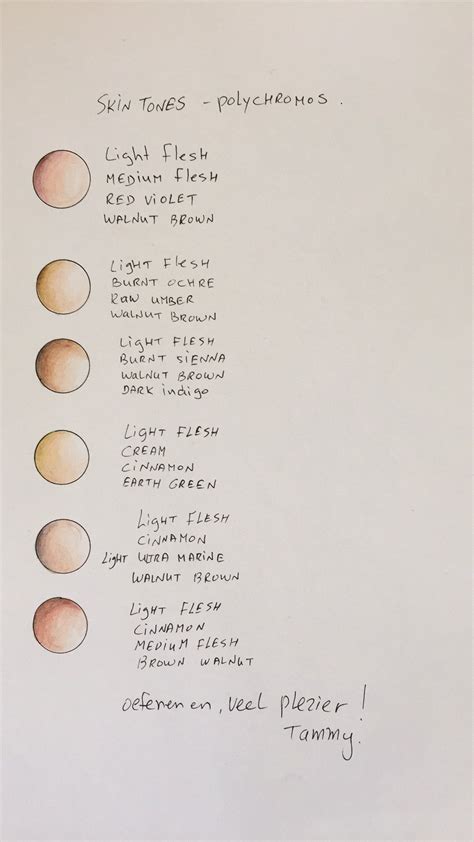 SKIN TONES - POLYCHROMOS.
Light Flesh
MEDIUM flesh
RED VIOLET
WALNUT BROWN
LIGHT Flesh
BURNT OCHRE
RAW UMBER
WALNUT BROWN
LIGHT FLESH
BURNT SIENNA
WALNUT BROWN
DARK indigo
LIGHT FLESH
CREAM
CINNAMON
EARTH GREEN
LIGHT FLESH
CINNAMON
Light ULTRA MARINE
WALNUT BROWN
LIGHT FLESH
CINNAMON
MEDIUM FLESH
BROWN WALNUT
oefenen en, veel plezier!
Tammy.